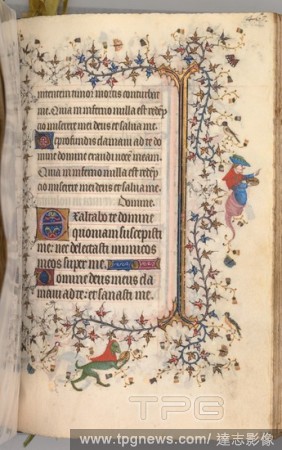 mentem timor mortis conturbat
me. Quia in inferno nulla est redēp
cio miserere mei deus et salua me.
De profundis clamaui ad te do
mine domine exaudi uocem meam.
Quia in inferno nulla est redēp
cio miserere mei deus et salua me.
Domine.
Exaltabo te domine
quoniam suscepisti
me: nec delectasti inimicos
meos super me.
Domine deus meus cla
maui ad te: et sanasti me.
TPG
www.tpgnews.com/達志影像